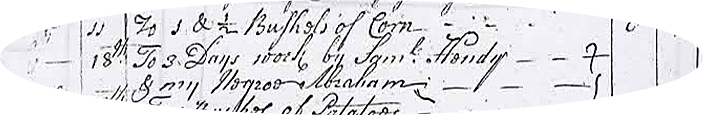 11 To 1 & ½ Bushels of Corn
18th To 3 Days work by Saml. Hendy
& my Negroe Abraham
Bushel of Potatoes